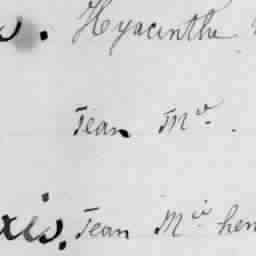 s. Hyacinthe
Jean Mie.
xis. Jean Mie hen